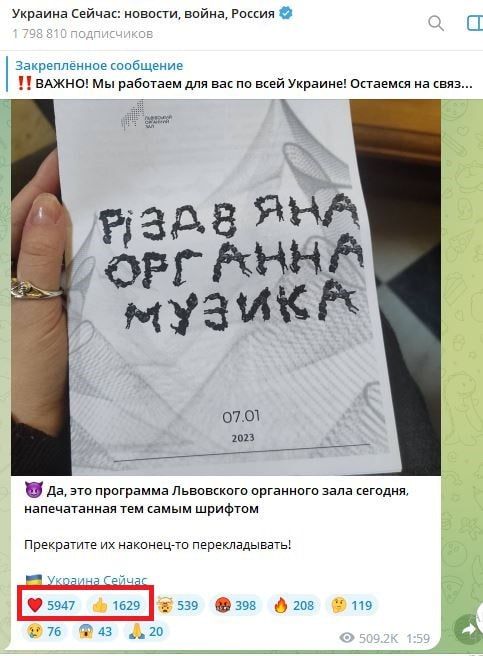 Украина Сейчас: новости, война, Россия
1 798 810 подписчиков
Закреплённое сообщение
‼️ВАЖНО! Мы работаем для вас по всей Украине! Остаемся на связ...
ЛЬВІВСЬКИЙ
ОРГАННИЙ
ЗАЛ
РІЗДВЯНА
ОРГАННА
МУЗИКА
07.01
2023
😈 Да, это программа Львовского органного зала сегодня,
напечатанная тем самым шрифтом
Прекратите их наконец-то перекладывать!
🇺🇦 Украина Сейчас
❤️ 5947 👍 1629 🤯 539 🤬 398 🔥 208 🤔 119
😢 76 😱 43 🙏 20 509.2K 1:59